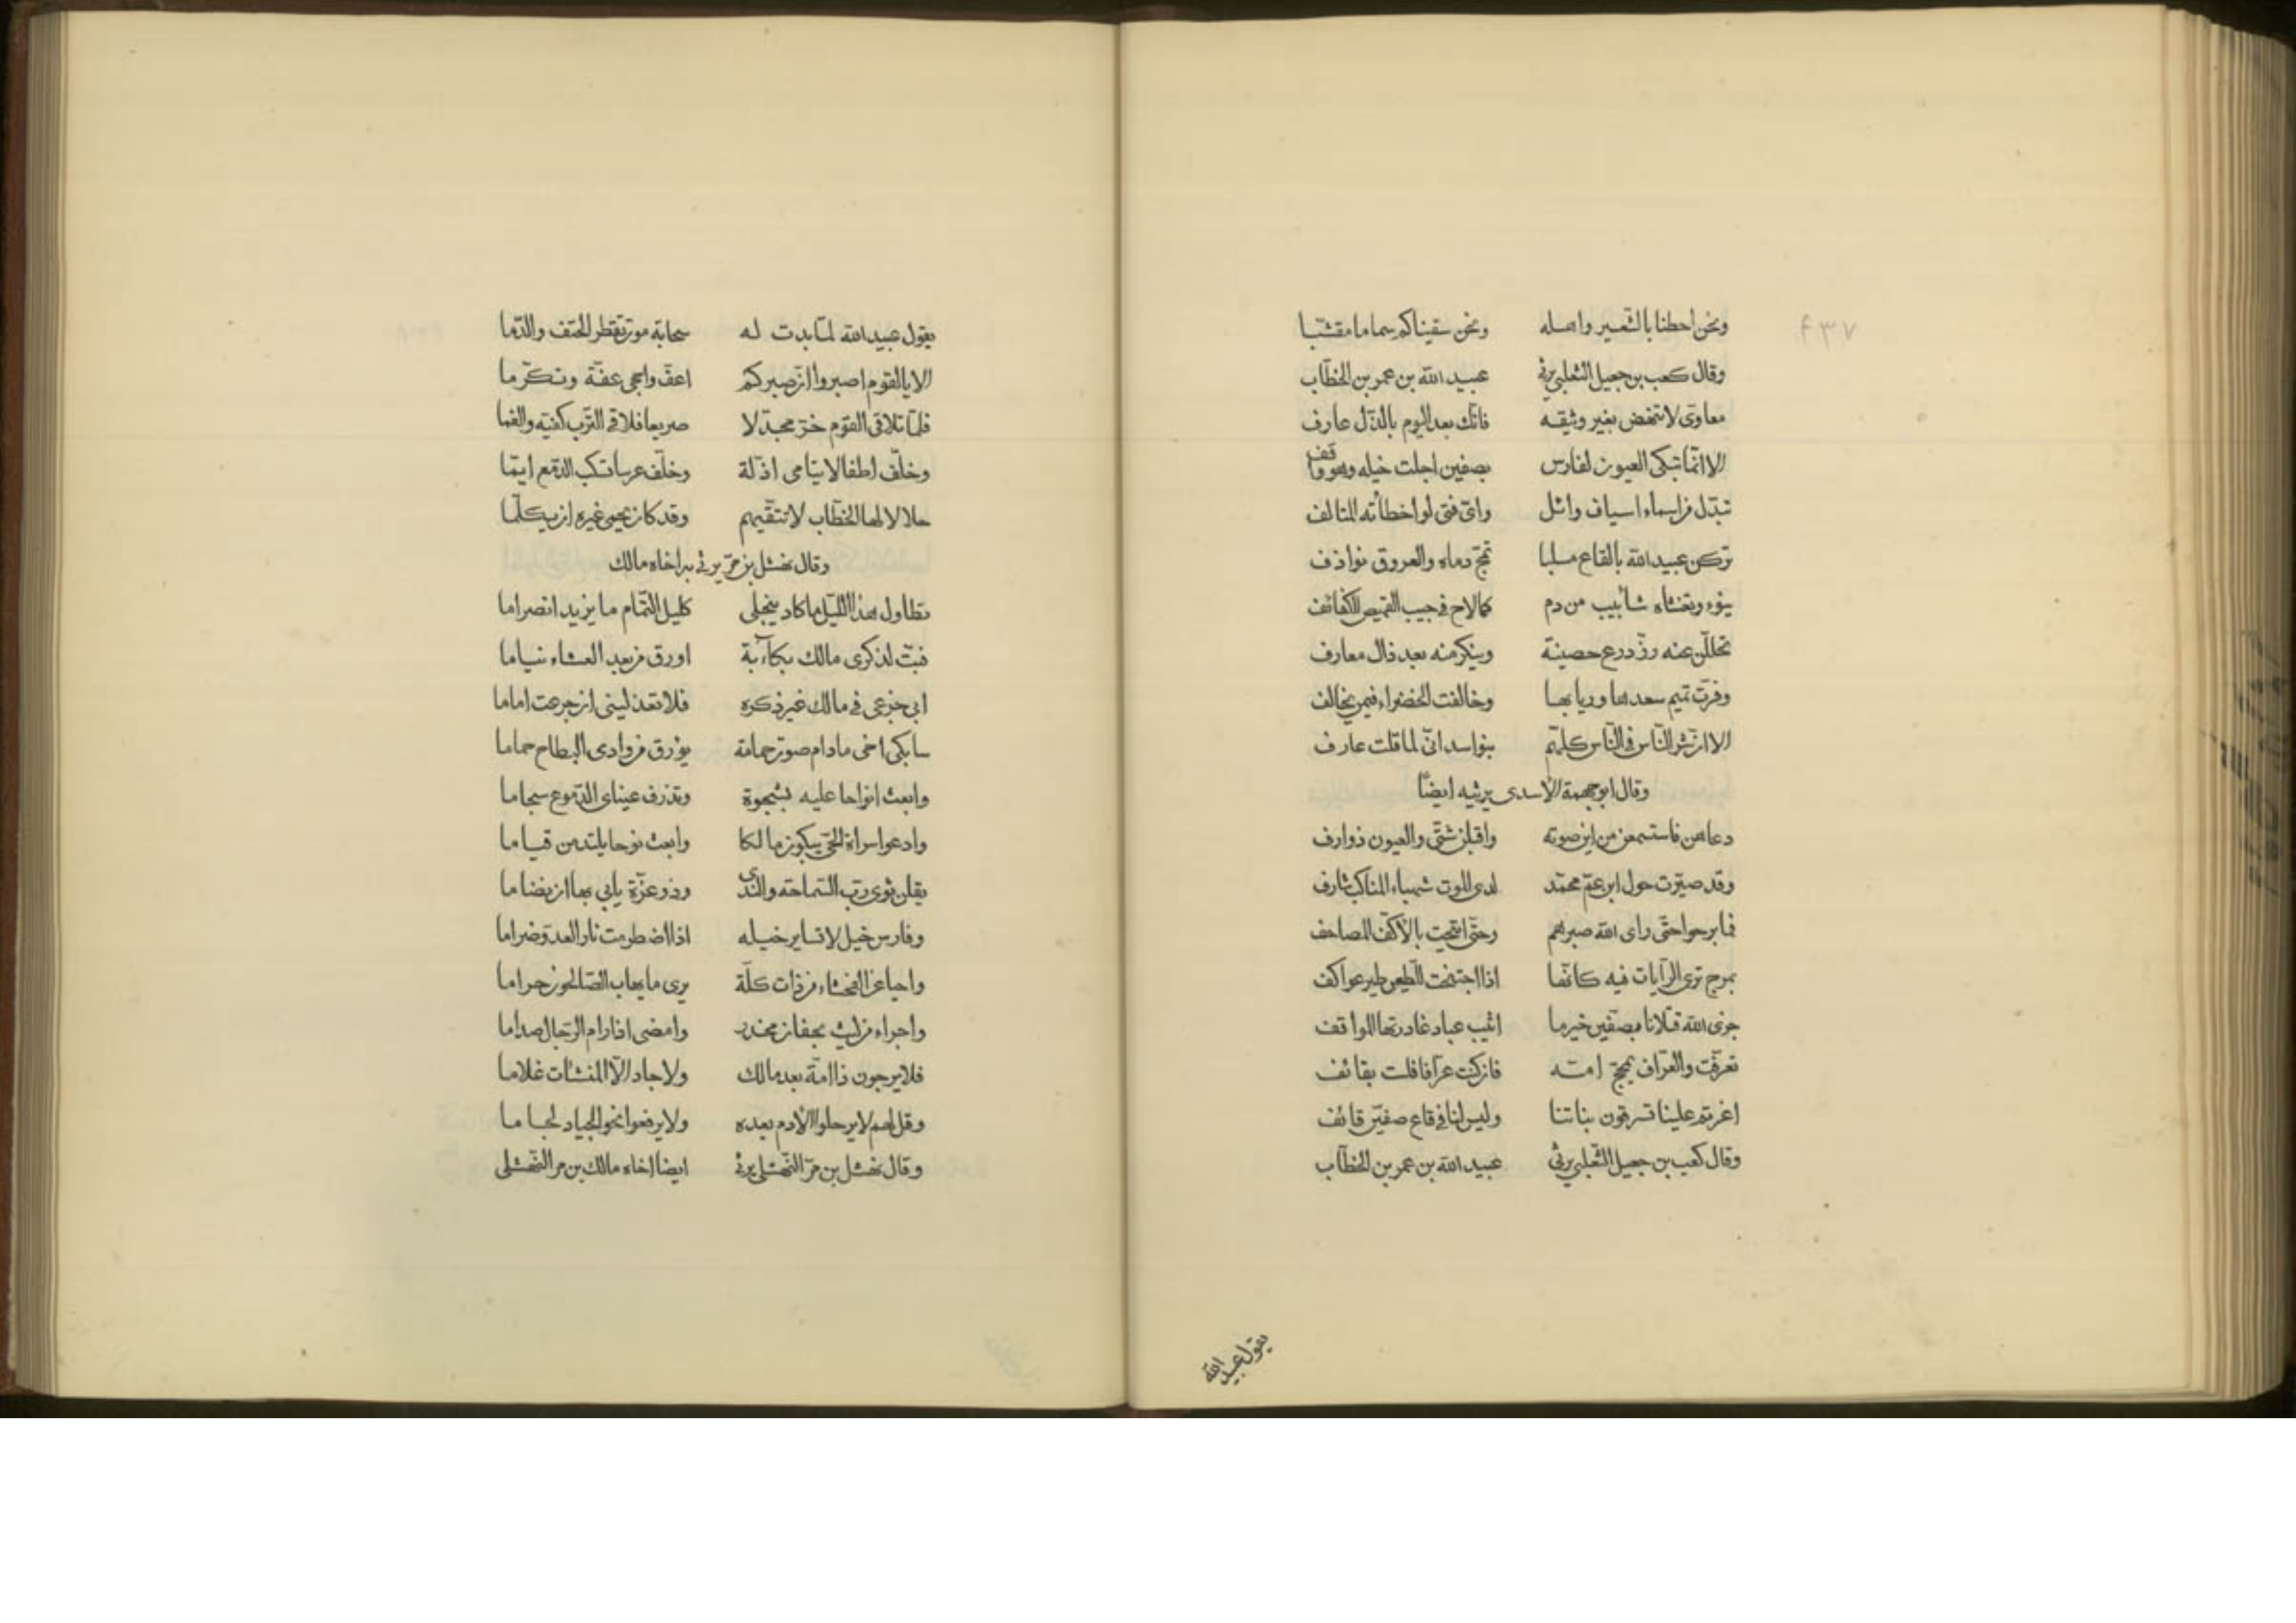 ونحن احطنا بالشعير واهله ونحن سقيناكم سماما مقشبا
وقال كعب بن جعيل الثعلبي يرثي عبيد الله بن عمر بن الخطاب
معاوى لا تنهض بغير وثيقه فانك بعد اليوم بالذل عارف
الا انما تبكى العيون لفارس بصفين اجلت خيله وهو واقف
تبدل من اسماء اسياف وائل واى فتى لو اخطأته المتالف
تركن عبيد الله بالقاع مسلبا تمج دماه والعروق نوازف
ينوء وتغشاه شآبيب من دم كما لاح في جيب القميص الكفائف
تحللن عنه زر درع حصينة وينكر منه بعد ذال معارف
وفرت تميم سعدها وربابها وخالفت الخضراء فيمن يخالف
الا ان شر الناس في الناس كلهم بنو اسد انى لما قلت عارف
وقال ابو جهمة الأسدى يرثيه ايضًا
دعاهن فاستسمعن من اين صوته واقبلن شتى والعيون ذوارف
وقد صبرت حول ابن عم محمد لدى الموت شهباء المناكب شارف
فما برحوا حتى راى الله صبرهم وحتى اتيحت بالأكف المصاحف
بمرج ترى الرايات فيه كانها اذا اجتنحت للطعن طير عواكف
جزى الله قتلانا بصفين خير ما اثيب عباد غادرتها المواقف
تعرفت والعراف يمجج امه فان كنت عرافا فلست بقائف
اغرتم علينا تسرقون بناتنا وليس لنا في قاع صفين قائف
وقال كعب بن جعيل الثعلبي يرثي عبيد الله بن عمر بن الخطاب
يقول عبيد الله
يقول عبيد الله لما بدت له سحابة موت تقطر الحتف والدما
الا يا لقوم اصبروا ان صبركم اعف واحجى عفة وتكرما
فلما تلاقى القوم خر مجدلا صريعا فلاقى الترب كفيه والفما
وخلف اطفالا يتامى اذلة وخلف عرسا تسكب الدمع ايما
حلالا لها الخطاب لا تتقيهم وقد كان يحمى غيره ان يكلما
وقال نهشل بن حرى يرثي بها اخاه مالك
تطاول هذا الليل ما كاد ينجلى كليل التمام ما يزيد انصراما
فبت لذكرى مالك بكآبة اورق من بعد العشاء نياما
ابى جزعى في مالك غير ذكره فلا تعذلينى ان جزعت اماما
سابكى اخى مادام صوت حمامة يؤرق من وادى البطاح حماما
وابعث انواحا عليه بشجوة وتذرف عيناى الدموع سجاما
وادعو اسراة الحى يبكون مالكا وابعث نوحا يلتدمن قياما
يقلن ثوى رب السماحة والندى وذو عزة يابى بها ان يضاما
وفارس خيل لا تساير خيله اذا اضطرمت نار العدو ضراما
واحيا عن الفحشاء من ذات كلة يرى ما يهاب الصالحون حراما
واجراء من ليث بخفان مخدر وامضى اذا رام الرجال صداما
فلا يرجون ذا امة بعد مالك ولا جاد الا المنشآت غلاما
وقل لهم لا يرحلوا الأدم بعده ولا يرفعوا نحو الجياد لجاما
وقال نهشل بن حر النهشلى يرثي ايضا اخاه مالك بن حر النهشلى